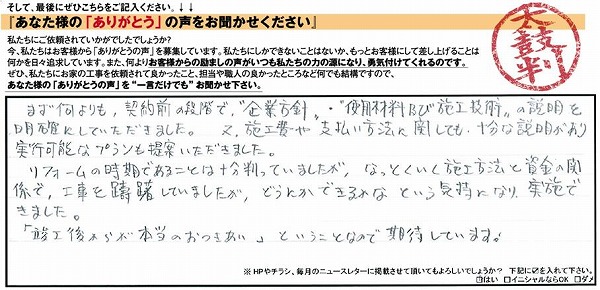 そして、最後にぜひこちらをご記入ください。↓↓
『あなた様の「ありがとう」の声をお聞かせください』
私たちにご依頼されていかがでしたでしょうか?
今、私たちはお客様から「ありがとうの声」を募集しています。私たちにしかできないことはないか、もっとお客様にして差し上げることは
何かを日々追求しています。また、何よりお客様からの励ましの声がいつも私たちの力の源になり、勇気付けてくれるのです。
ぜひ、私たちにお家の工事を依頼されて良かったこと、担当や職人の良かったところなど何でも結構ですので、
あなた様の「ありがとうの声」を“一言だけでも”お聞かせ下さい。
太鼓判
まず何よりも、契約前の段階で、“企業方針”・“使用材料及び施工技術”の説明を
明確にしていただきました。又、施工費や支払い方法に関しても、十分な説明があり
実行可能なプランも提案いただきました。
リフォームの時期であることは十分判っていましたが、なっとくいく施工方法と資金の関
係で、工事を躊躇していましたが、どうにかできるかな という気持になり、実施で
きました。
「竣工後からが本当のおつきあい」ということなので期待しています。
※HPやチラシ、毎月のニュースレターに掲載させて頂いてもよろしいでしょうか? 下記に☑を入れて下さい。
はい □イニシャルならOK □ダメ